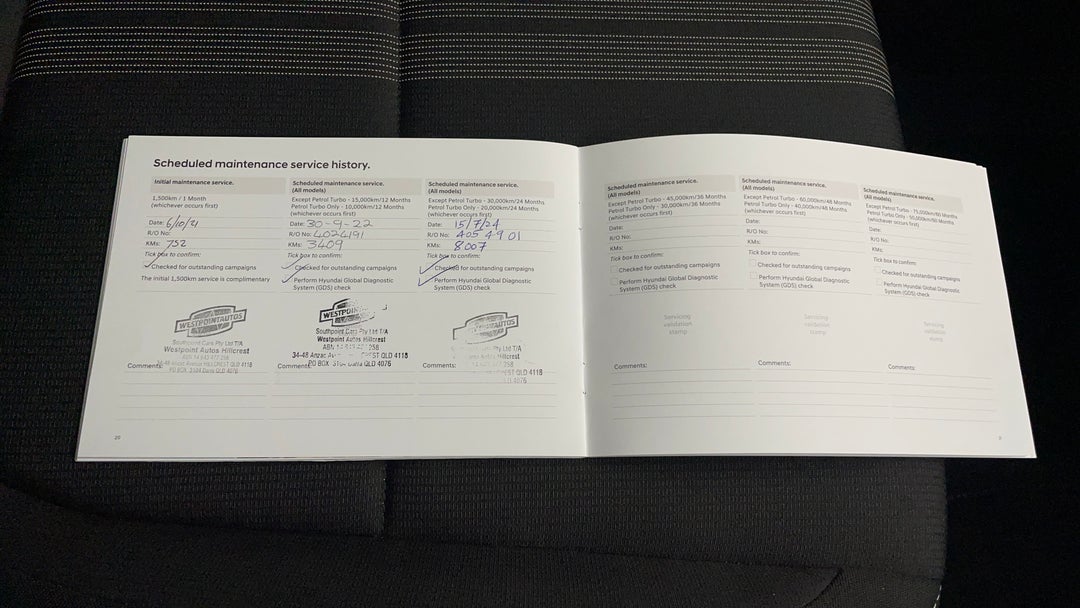 Scheduled maintenance service history.
Initial maintenance service.
1,500km / 1 Month
(whichever occurs first)
Date: 6/10/21
R/O No:
KMs: 752
Tick box to confirm:
Checked for outstanding campaigns
The initial 1,500km service is complimentary
WESTPOINTAUTOS
Southpoint Cars Pty Ltd T/A
Westpoint Autos Hillcrest
34-48 Anzac Avenue HILLCREST QLD 4118
PO BOX 3104 Darra QLD 4076
Comments:
20
Scheduled maintenance service.
(All models)
Except Petrol Turbo - 15,000km/12 Months
Petrol Turbo Only - 10,000km/12 Months
(whichever occurs first)
Date: 30-9-22
R/O No: 4024191
KMs: 3409
Tick box to confirm:
Checked for outstanding campaigns
Perform Hyundai Global Diagnostic
System (GDS) check
WESTPOINT
Southpoint Cars Pty Ltd T/A
Westpoint Autos Hillcrest
ABN 258
34-48 Anzac CREST QLD 4118
PO BOX QLD 4076
Comments:
Scheduled maintenance service.
(All models)
Except Petrol Turbo - 30,000km/24 Months
Petrol Turbo Only - 20,000km/24 Months
(whichever occurs first)
Date: 15/7/24
R/O No: 405 49 01
KMs: 8007
Tick box to confirm:
Checked for outstanding campaigns
Perform Hyundai Global Diagnostic
System (GDS) check
WESTPOINTAUTOS
Pty Ltd T/A
Autos Hillcrest
QLD 4118
4076
Comments:
Scheduled maintenance service.
(All models)
Except Petrol Turbo - 45,000km/36 Months
Petrol Turbo Only - 30,000km/36 Months
(whichever occurs first)
Date:
R/O No:
KMs:
Tick box to confirm:
Checked for outstanding campaigns
Perform Hyundai Global Diagnostic
System (GDS) check
Servicing
validation
stamp
Comments:
Scheduled maintenance service.
(All models)
Except Petrol Turbo - 60,000km/48 Months
Petrol Turbo Only - 40,000km/48 Months
(whichever occurs first)
Date:
R/O No:
KMs:
Tick box to confirm:
Checked for outstanding campaigns
Perform Hyundai Global Diagnostic
System (GDS) check
Servicing
validation
stamp
Comments:
Scheduled maintenance service.
(All models)
Except Petrol Turbo - 75,000km/60 Months
Petrol Turbo Only - 50,000km/60 Months
(whichever occurs first)
Date:
R/O No:
KMs:
Tick box to confirm:
Checked for outstanding campaigns
Perform Hyundai Global Diagnostic
System (GDS) check
Servicing
validation
stamp
Comments: